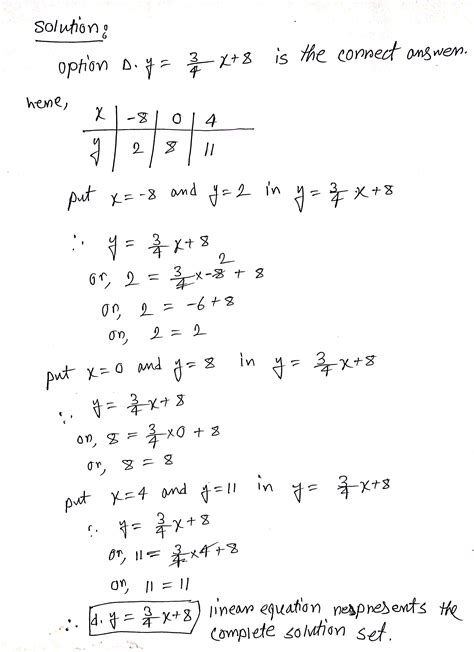 Solution:
option D. y = 3/4 x+8 is the connect answen.
hene,
x | -8 | 0 | 4
y | 2 | 8 | 11
put x=-8 and y=2 in y = 3/4 x+8
∴ y = 3/4 x+8
or, 2 = 3/4 x-8 2 + 8
or, 2 = -6+8
or, 2 = 2
put x=0 and y=8 in y = 3/4 x+8
∴ y = 3/4 x+8
or, 8 = 3/4 x0 + 8
or, 8 = 8
put x=4 and y=11 in y = 3/4 x+8
∴ y = 3/4 x+8
or, 11 = 3/4 x4+8
or, 11 = 11
∴ d. y = 3/4 x+8 linean equation nespnesents the
complete solution set.